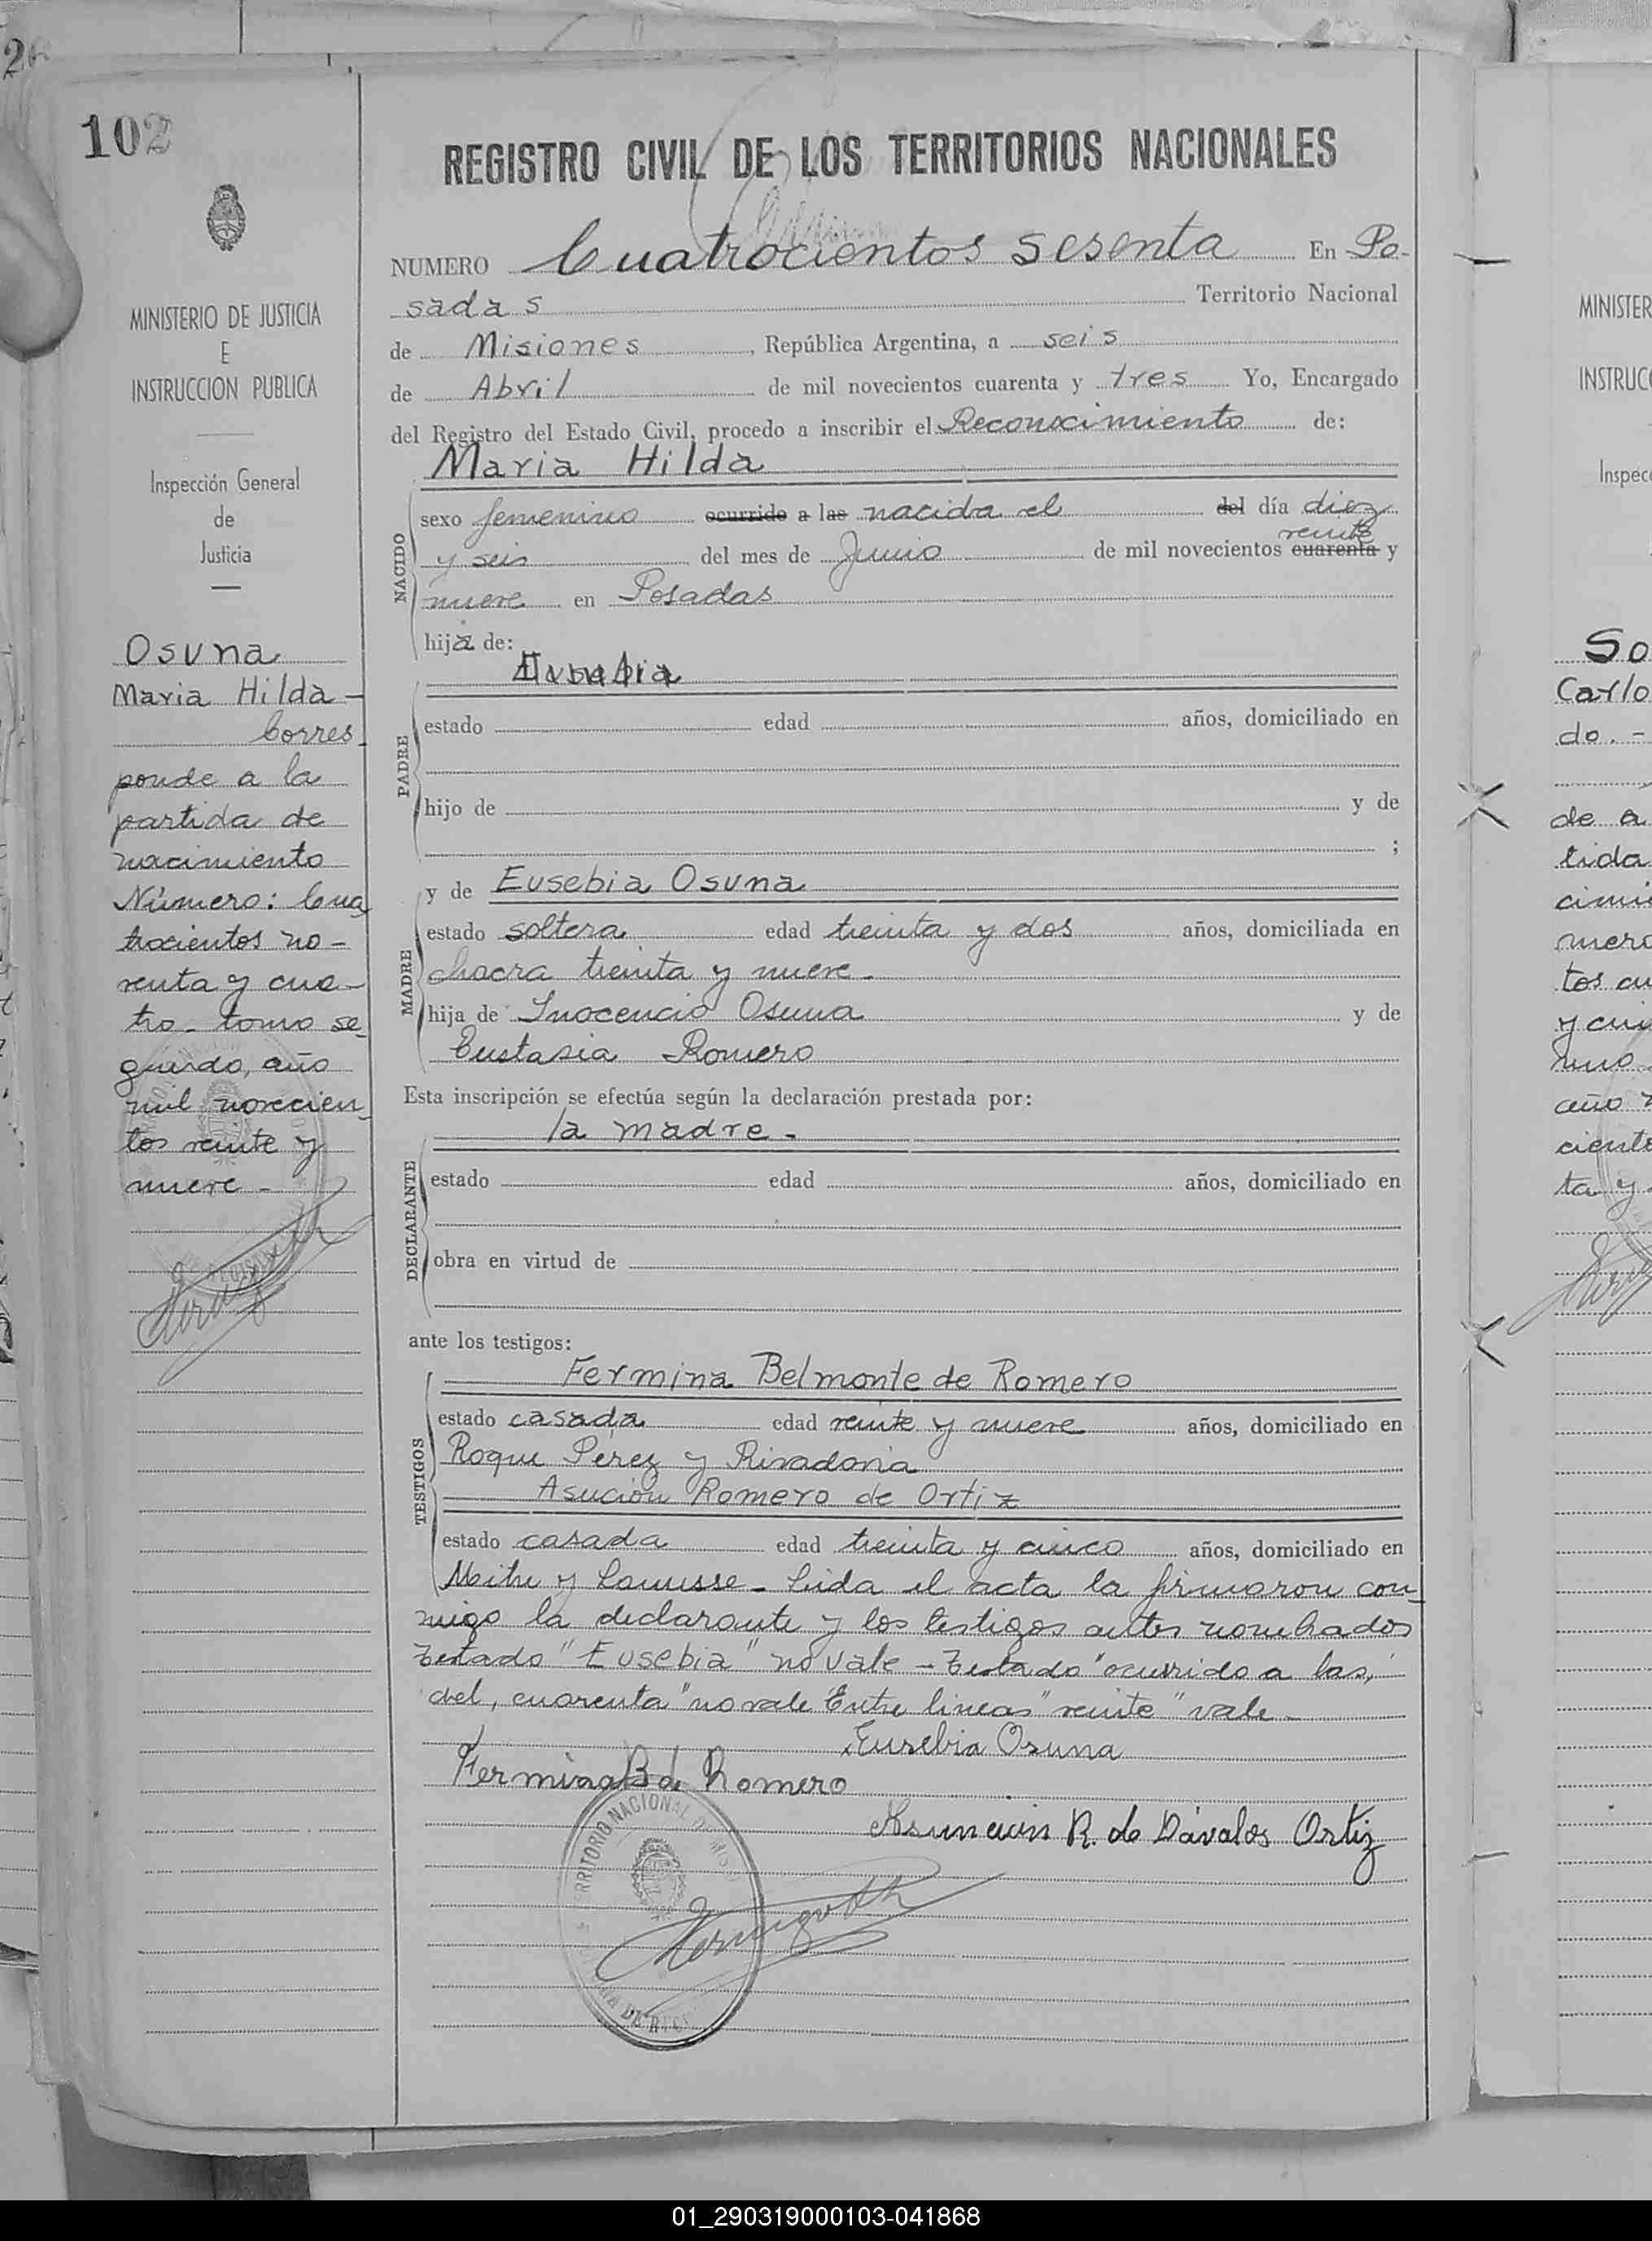 26
102
MINISTERIO DE JUSTICIA
E
INSTRUCCION PUBLICA
Inspección General
de
Justicia
Osuna
Maria Hilda -
Corres_
ponde a la
partida de
nacimiento
Número: Cua_
trocientos no-
venta y cua-
tro - tomo se_
gundo, año
mil novecien_
tos veinte y
nueve -
REGISTRO CIVIL DE LOS TERRITORIOS NACIONALES
NUMERO Cuatrocientos sesenta En Po-
sadas Territorio Nacional
de Misiones, República Argentina, a seis
de Abril de mil novecientos cuarenta y tres Yo, Encargado
del Registro del Estado Civil, procedo a inscribir el Reconocimiento de:
Maria Hilda
NACIDO
sexo femenino ocurrido a las nacida el del día diez
y seis del mes de Junio de mil novecientos cuarenta veinte y
nueve en Posadas
hija de:
PADRE
Eusebia
estado edad años, domiciliado en
hijo de y de
;
MADRE
y de Eusebia Osuna
estado soltera edad treinta y dos años, domiciliada en
chacra treinta y nueve -
hija de Inocencio Osuna y de
Eustasia Romero
Esta inscripción se efectúa según la declaración prestada por:
la madre -
DECLARANTE
estado edad años, domiciliado en
obra en virtud de
ante los testigos:
TESTIGOS
Fermina Belmonte de Romero
estado casada edad veinte y nueve años, domiciliado en
Roque Perez y Rivadavia
Asución Romero de Ortiz
estado casada edad treinta y cinco años, domiciliado en
Mitre y Lanusse - Leida el acta la firmaron con_
migo la declarante y los testigos antes nombrados
Testado "Eusebia" no vale - Testado "ocurrido a las,
del, cuarenta" no vale Entre lineas "veinte" vale -
Eusebia Osuna
Fermina B de Romero
Asuncion R. de Dávalos Ortiz
TERRITORIO NACIONAL DE
MINISTER
INSTRUC
Inspec
So
Carlo
do. -
de a
tida
cimi
mero
tos cu
y cu
uno
año
ciento
ta y
01_290319000103-041868